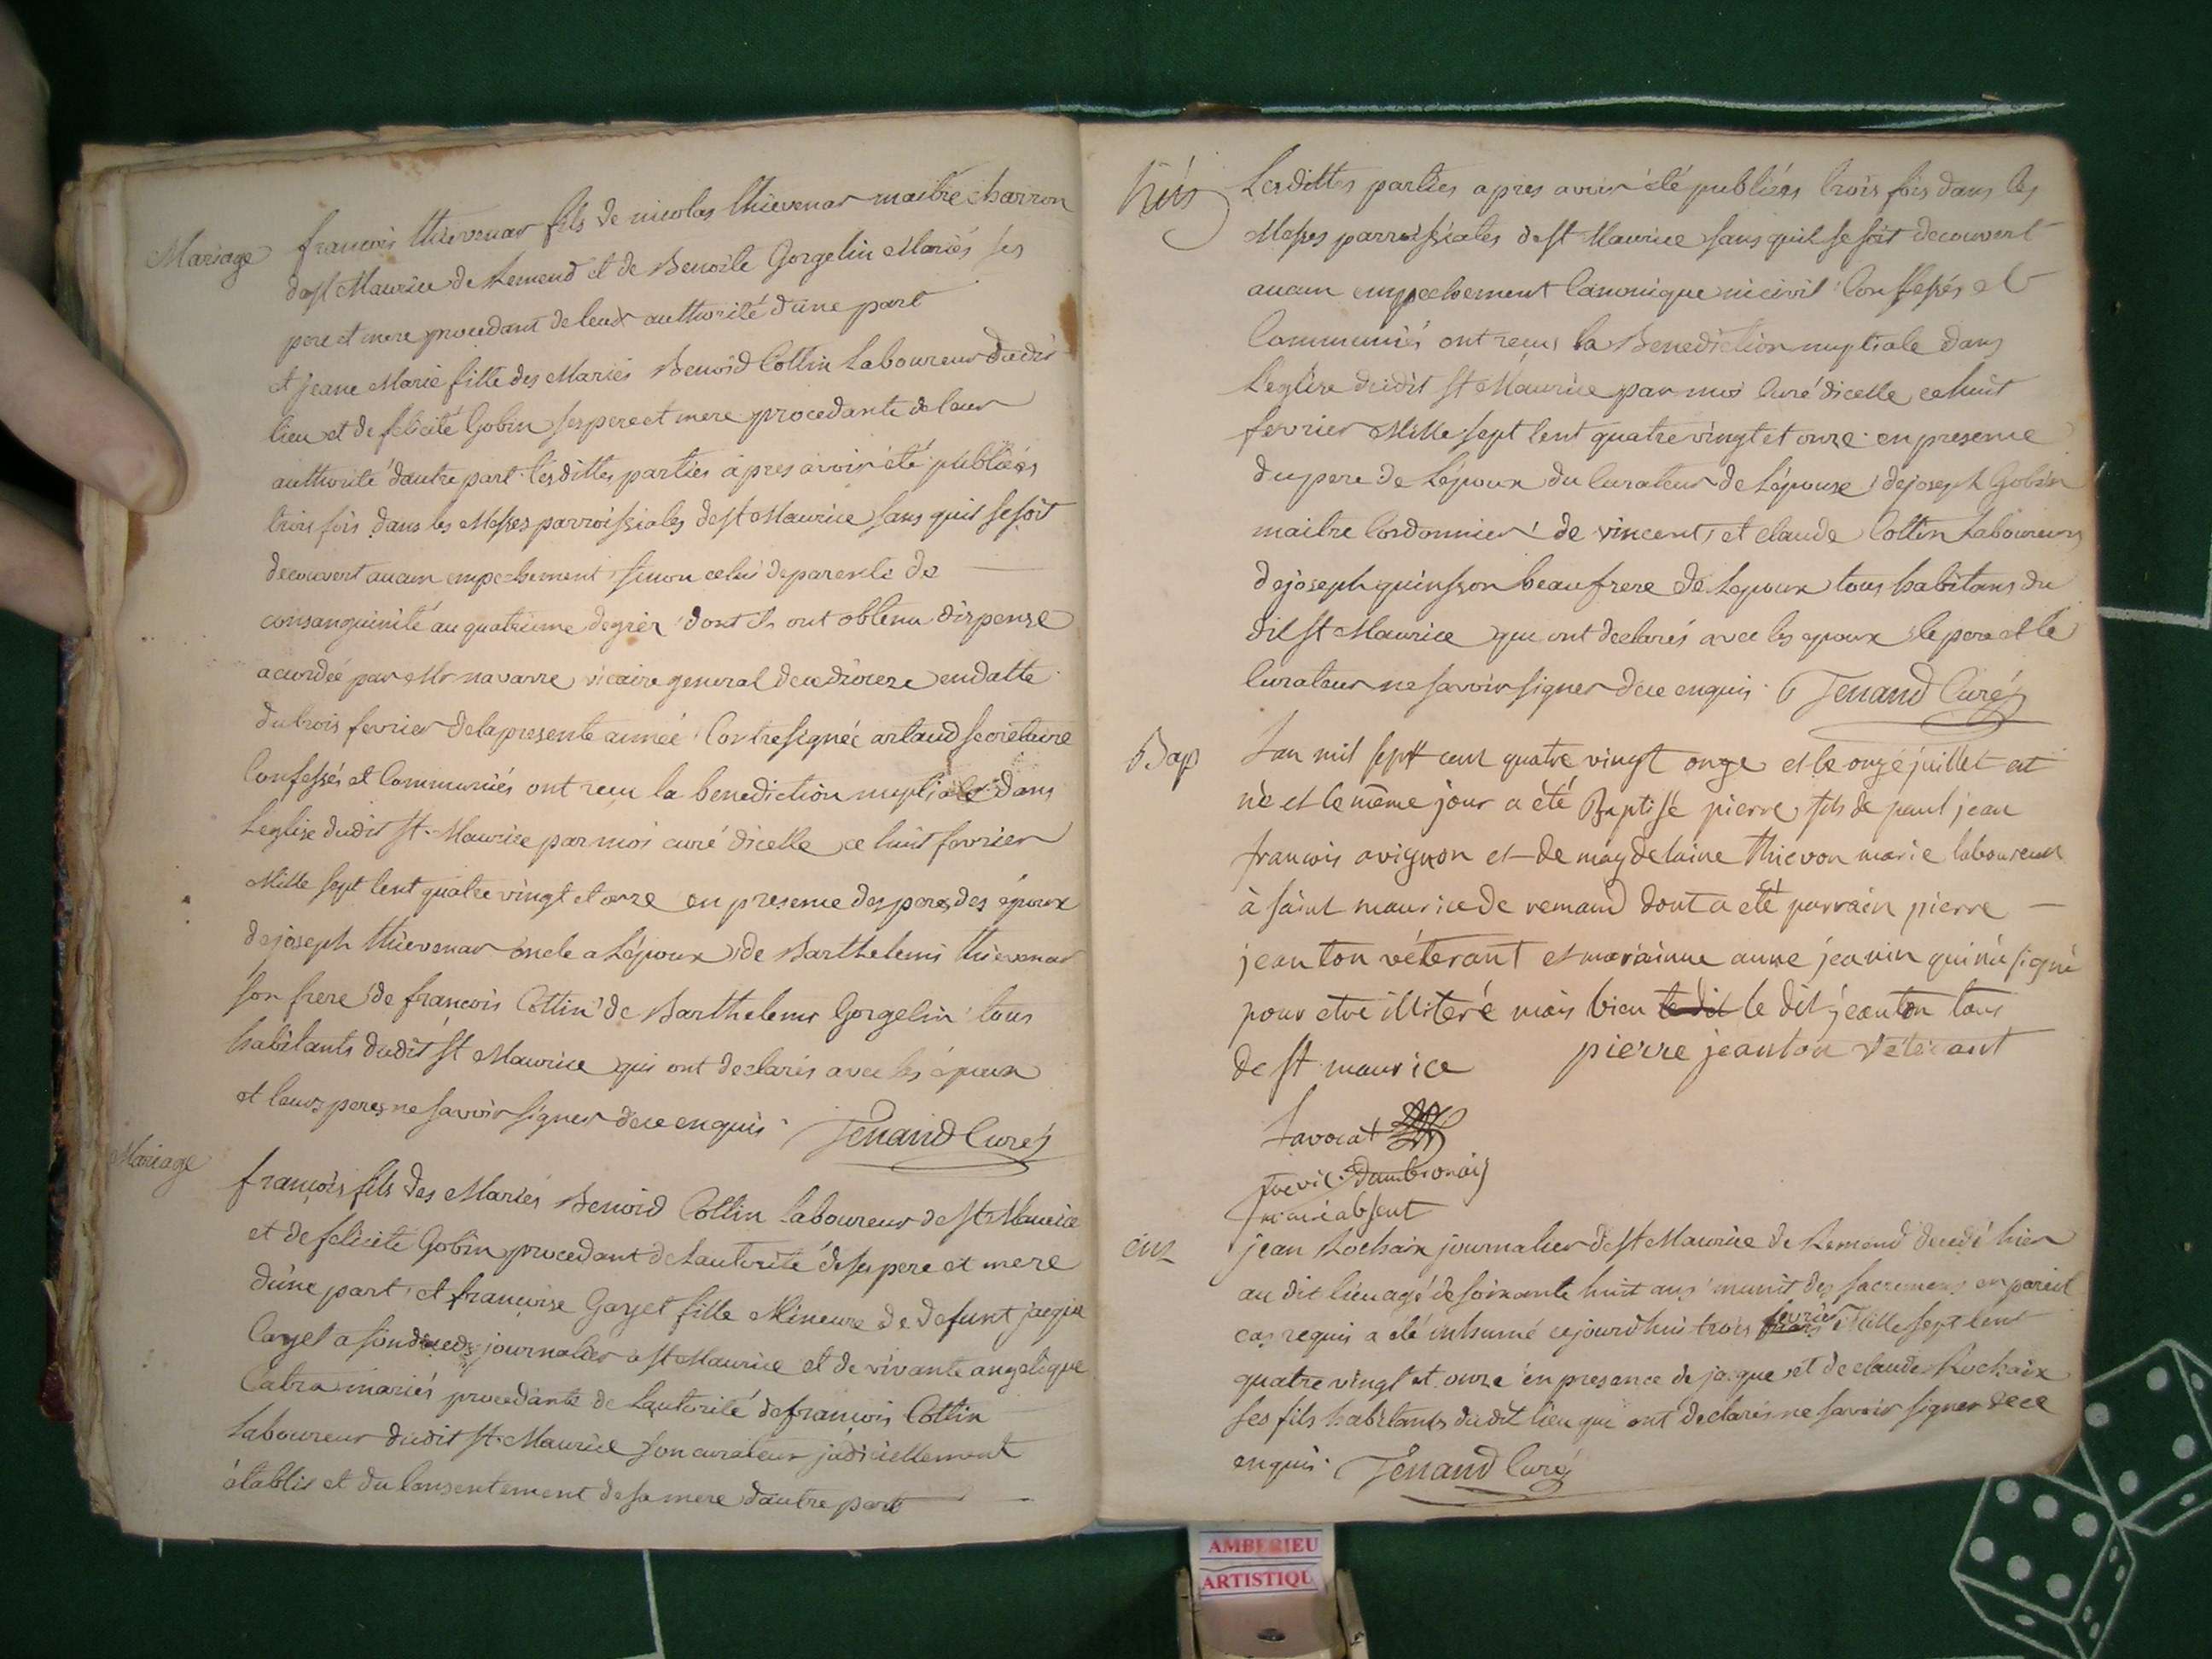 Mariage
françois thievenar fils de nicolas thievenar maitre charron
de st Maurice de Remend et de Benoite Gorgelin Mariés ses
pere et mere procedant de leur authorité d'une part
et jeane Marie fille des Mariés Benoid Cottin Laboureur dudit
lieu et de felicité Gobin ses pere et mere procedante de leur
authorité d'autre part. lesdittes parties apres avoir été publiées
trois fois dans les Messes parroissiales de st Maurice sans quil se soit
decouvert aucun empechement sinon celui de parenté de
consanguinité au quatrieme degrér dont ils ont obtenu dispense
acordée par Mr navarre vicaire general de ce diocese en datte
du trois fevrier de la presente année Contresignée artaud secretaire
Confessés et Communiés ont reçu la benediction nuptiale dans
L'eglise dudit st. Maurice par moi curé dicelle ce huit fevrier
Mille sept cent quatre vingt et onze en presence des peres des époux
de joseph thievenar oncle a L'époux de Barthelemi thievenar
son frere de francois Cottin de Barthelemi Gorgelin tous
habitants dudit st Maurice qui ont declarés avec les époux
et leurs peres ne savoir signer de ce enquis. Tenand Curé
Mariage
françois fils des Mariés Benoid Cottin Laboureur de st Maurice
et de felicité Gobin procedant de L'autorité de ses pere et mere
d'une part et françoise Gayet fille Mineure de defunt jacque
Cayet a son deceds journalier a st Maurice et de vivante angelique
Catra mariés procedante de L'autorité de françois Cottin
Laboureur dudit st Maurice son curateur judiciellement
établie et du consentement de sa mere d'autre part
Lesdittes parties apres avoir été publiées trois fois dans les
Messes parroissiales de st Maurice sans quil se soit decouvert
aucun empechement Canonique ni civil Confessés et
Communiés ont reçus la Benediction nuptiale dans
L'eglise dudit st Maurice par moi Curé dicelle ce huit
fevrier Mille sept cent quatre vingt et onze en presence
du pere de L'époux du Curateur de L'épouse de joseph Gobin
maitre Cordonnier de vincent et claude Cottin Laboureurs
de joseph quinsson beaufrere de L'epoux tous habitans du
dit st Maurice qui ont declarés avec les epoux le pere et le
Curateur ne savoir signer de ce enquis. Tenand Curé
Bap
L'an mil sept cent quatre vingt onze et le onze juillet est
né et le même jour a été Baptisé pierre fils de paul jean
francois avignon et de magdelaine thievon marie laboureur
à saint maurice de remand dont a été parrain pierre
jeanton véterant et marainne anne jeanin qui na signé
pour etre illiteré mais bien le dit le dit jeanton tous
de st maurice pierre jeanton veterant
Lavocat
pre vic. Dambronay
absent
jean Rochaix journalier de st Maurice de Remend decedé hier
au dit lieu agé de soixante huit ans munit des sacremens en pareil
cas requis a été inhumé cejourd'hui trois fevrier Mille sept cent
quatre vingt et onze en presence de jacque et de claude Rochaix
ses fils habitants dudit lieu qui ont declarés ne savoir signer de ce
enquis. Tenand Curé
AMBERIEU
ARTISTIQU